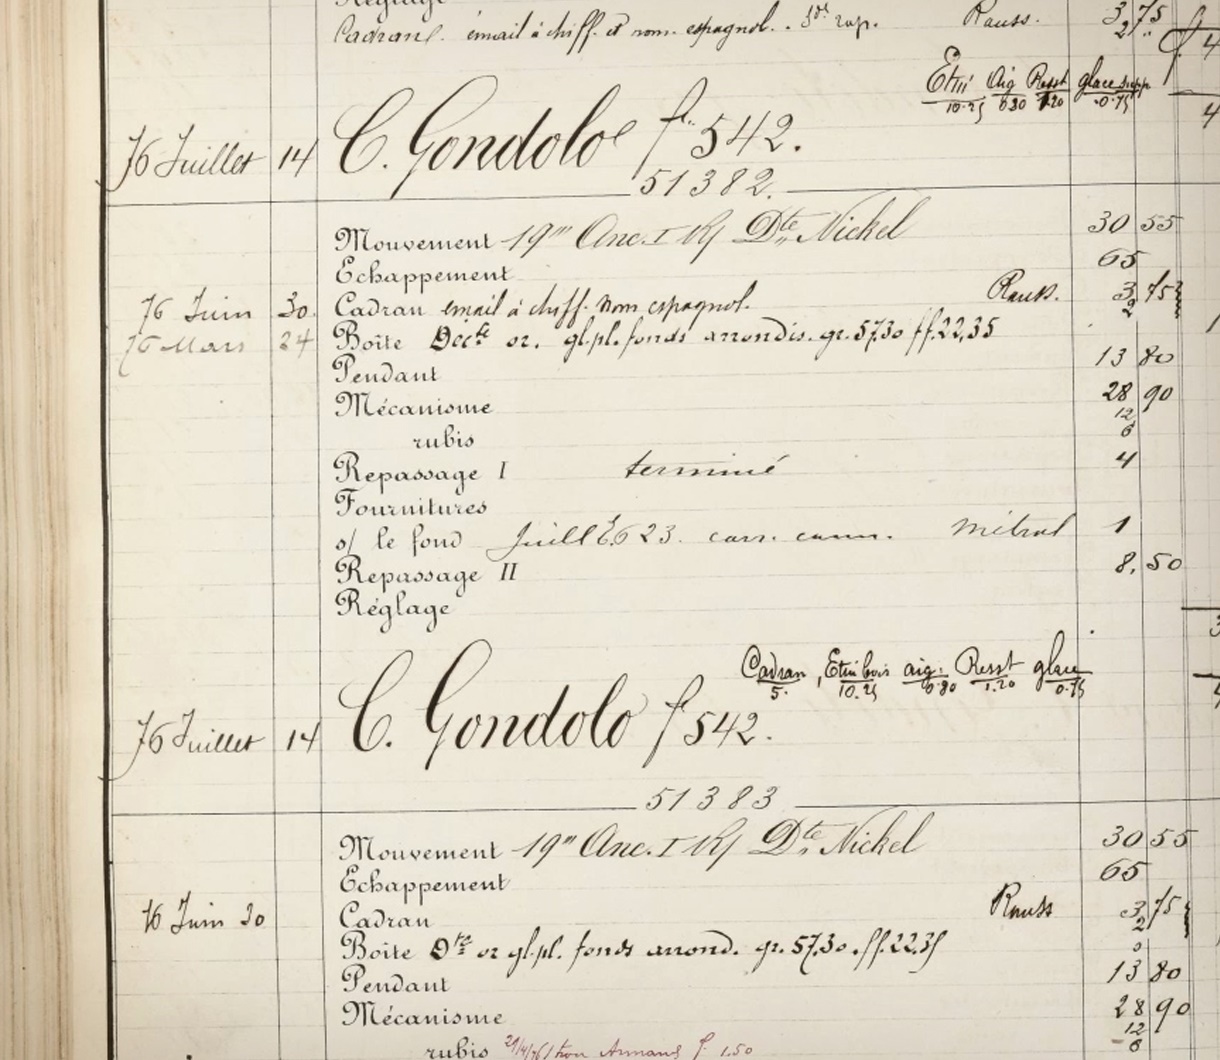 Réglage
Cadran émail à chiff. et nom. espagnol. rap. Rauss. 3 75
2
Etui Aig Resst glace supp
10.25 0.80 1.20 0.75
76 Juillet 14 C. Gondolo f. 542.
51382.
Mouvement 19''' Anc. I Rf Dte Nickel 30 55
Echappement 65
76 Juin 30 Cadran email à chiff. nom espagnol. Rauss. 3 75
2
76 Mars 24 Boîte Décte or. gl. pl. fonds arrondis. gr. 57.30 ff. 22,35
Pendant 13 80
Mécanisme 28 90
12
rubis 6
Repassage I terminé 4
Fournitures
s/ le fond 1
Repassage II 8. 50
Réglage
Cadran, Etui bois aig. Resst glace
5. 10.25 0.80 1.20 0.75
76 Juillet 14 C. Gondolo f 542.
51383
Mouvement 19''' Anc. I Rf Dte Nickel 30 55
Echappement 65
76 Juin 30 Cadran Rauss 3 75
2
Boîte or gl. pl. fonds arrond. gr. 57,30. ff. 22.35
Pendant 13 80
Mécanisme 28 90
12
rubis 6